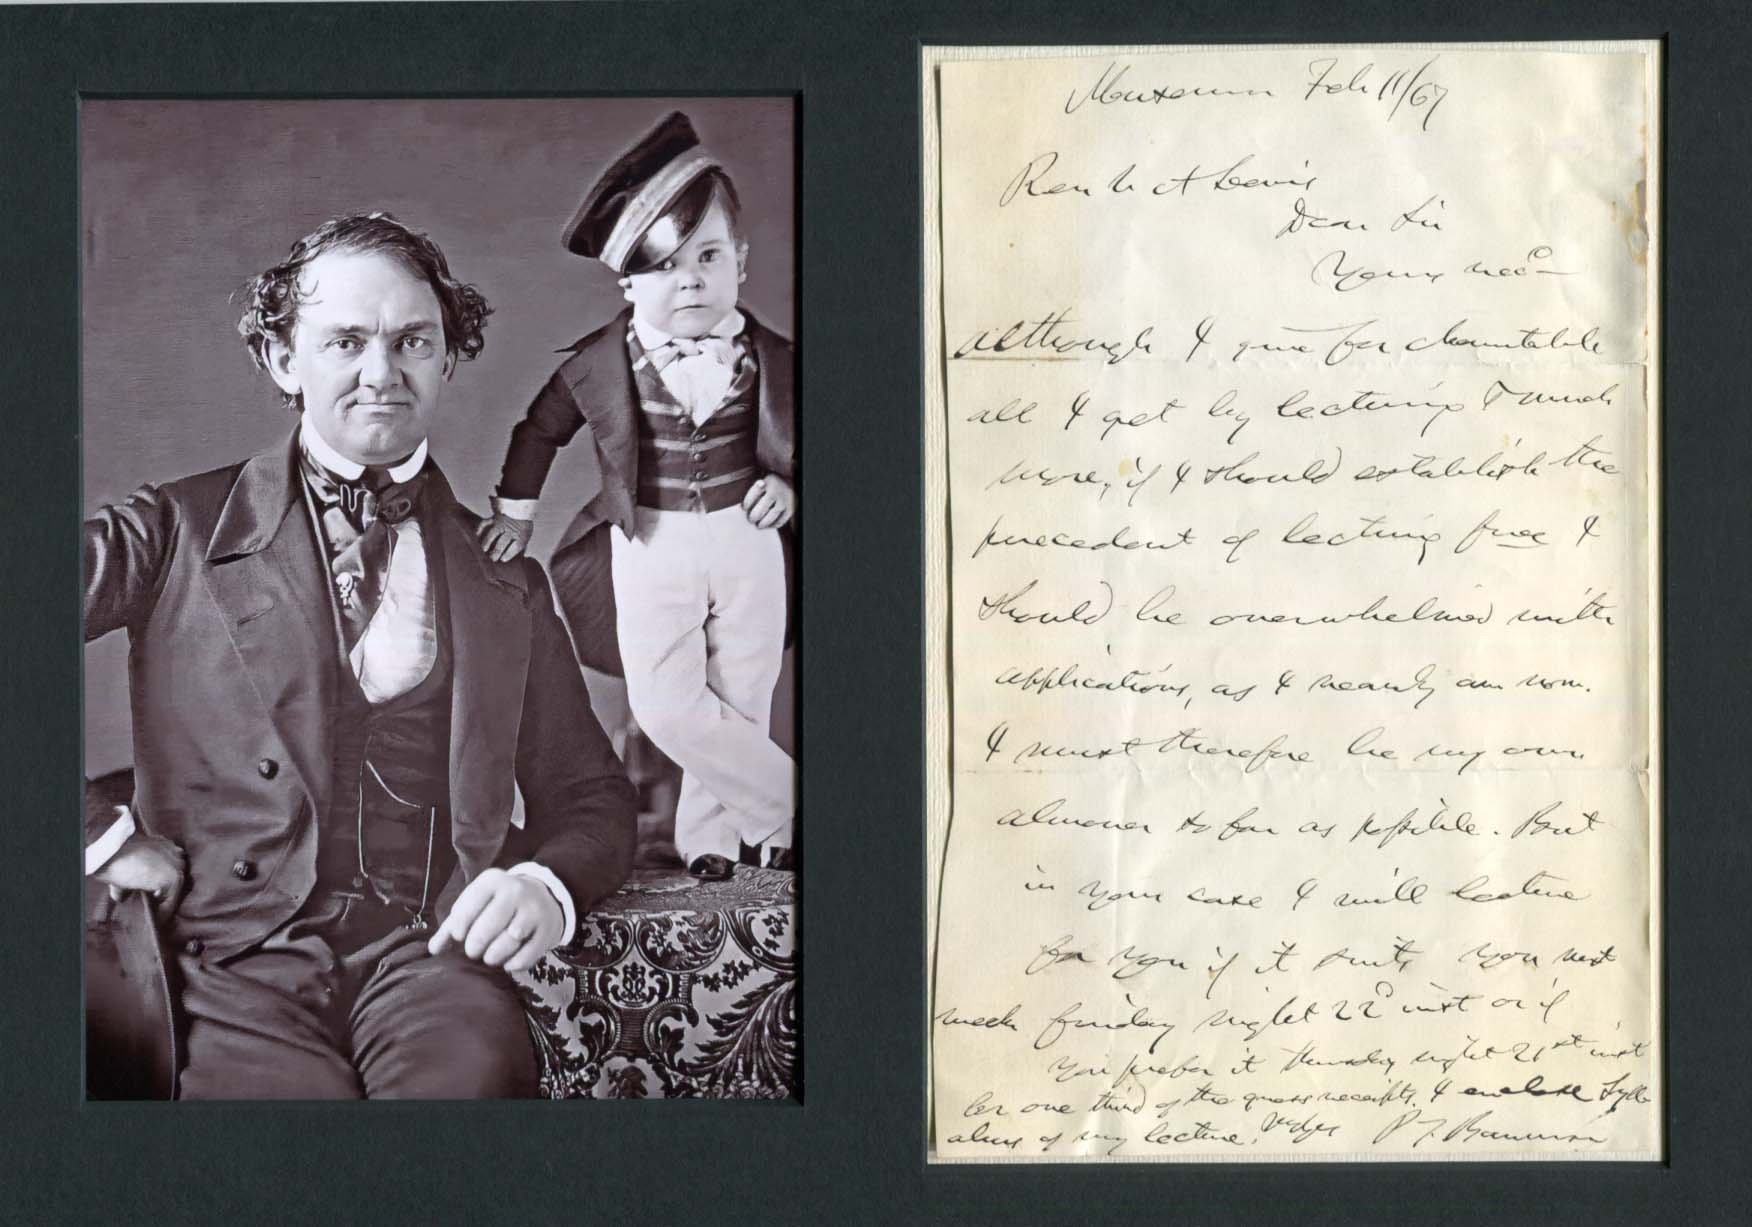 Museum Feb 11/67
Rev A Lewis
Dear Sir
Yours recd
although I give for charitable
all I get by lecturing & much
more, if I should establish the
precedent of lecturing free I
should be overwhelmed with
applications, as I nearly am now.
I must therefore be my own
almoner so far as possible. But
in your case I will lecture
for you if it suits you next
week friday night 22d inst or if
you prefer it thursday night 21st inst
for one third of the gross receipts. I enclose Sylla
abus of my lecture. P T Barnum